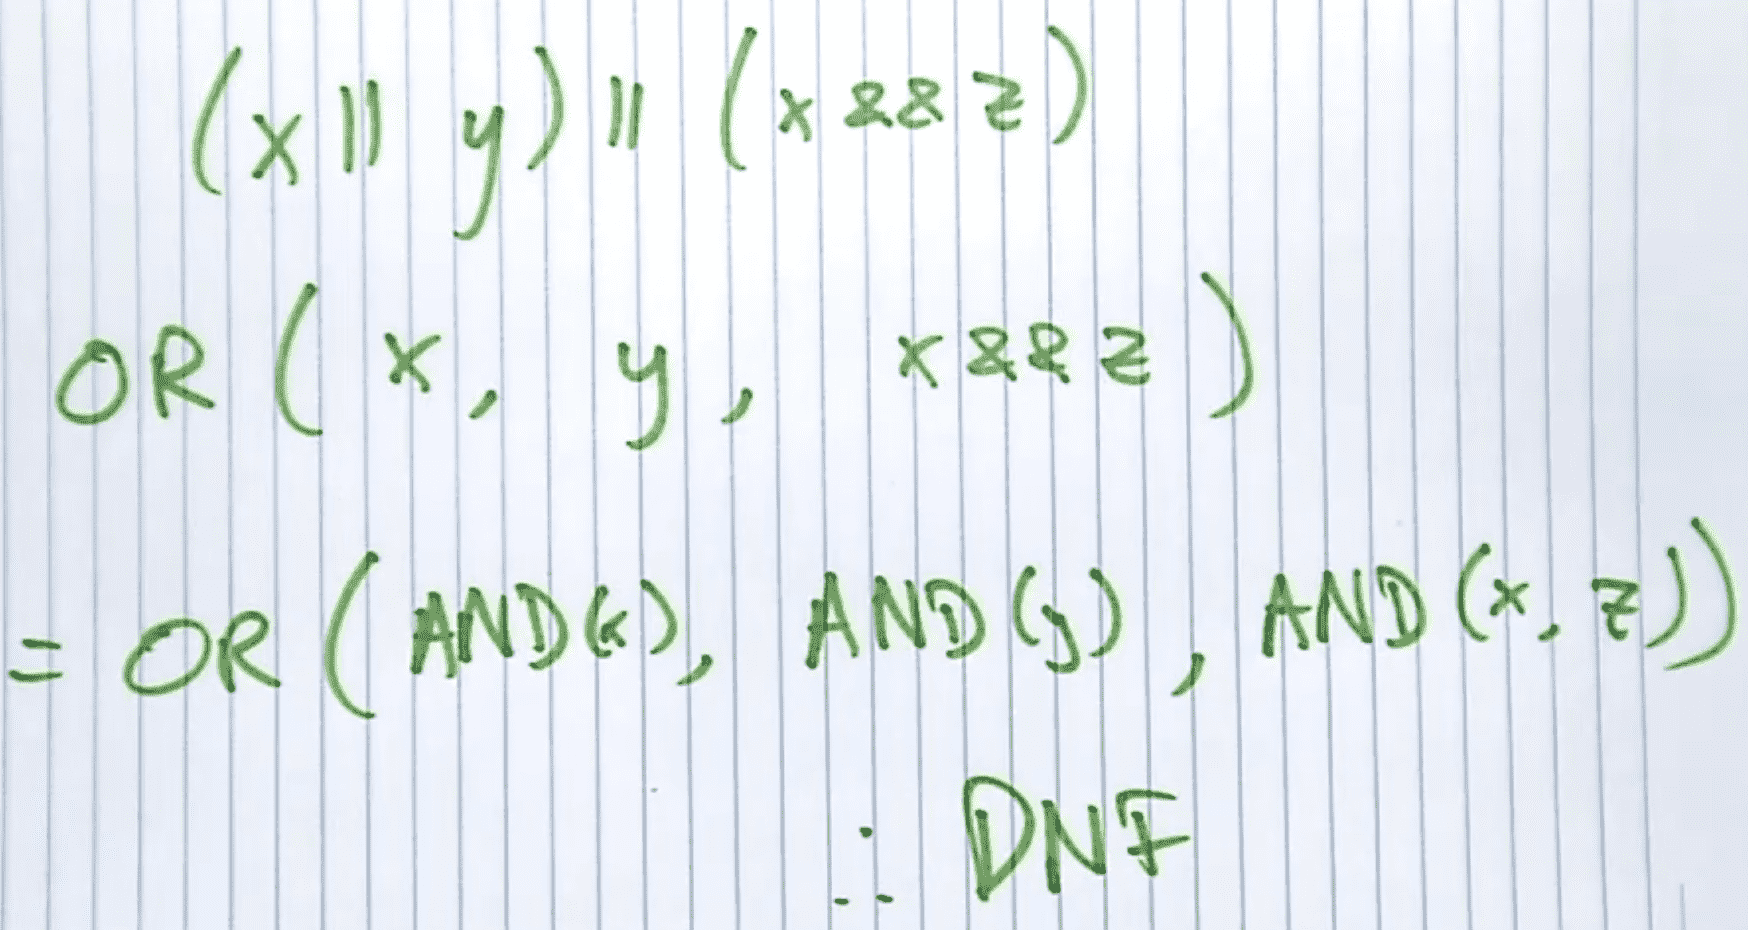 (x || y) || (x && z)
OR ( x, y, x && z )
= OR ( AND(x), AND(y), AND(x, z))
∴ DNF